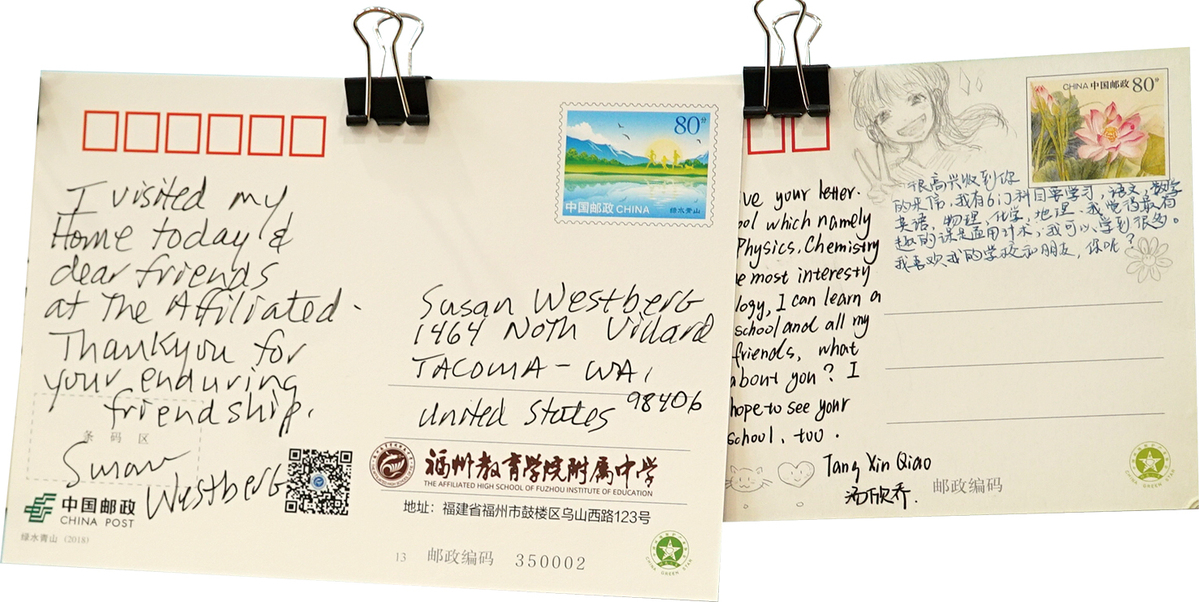 I visited my
Home today &
dear friends
at The Affiliated.
Thankyou for
your enduring
friendship.
Susan
Westberg
条码区
中国邮政
CHINA POST
绿水青山 (2018)
80分
中国邮政 CHINA
绿水青山
Susan Westberg
1464 Noth Villard
TACOMA - WA,
United States 98406
福州教育学院附属中学
THE AFFILIATED HIGH SCHOOL OF FUZHOU INSTITUTE OF EDUCATION
地址：福建省福州市鼓楼区乌山西路123号
13 邮政编码 350002
CHINA GREEN STAR
CHINA 中国邮政 80分
ve your letter.
ool which namely
Physics. Chemistry
e most interesty
logy, I can learn a
school and all my
friends, what
about you? I
hope to see your
school, too.
Tang Xin Qiao
汤欣乔
很高兴收到你
的来信，我有6门科目要学习，语文，数学
英语，物理，化学，地理，我觉得最有
趣的课是通用技术，我可以学到很多。
我喜欢我的学校和朋友，你呢？
邮政编码
CHINA GREEN STAR